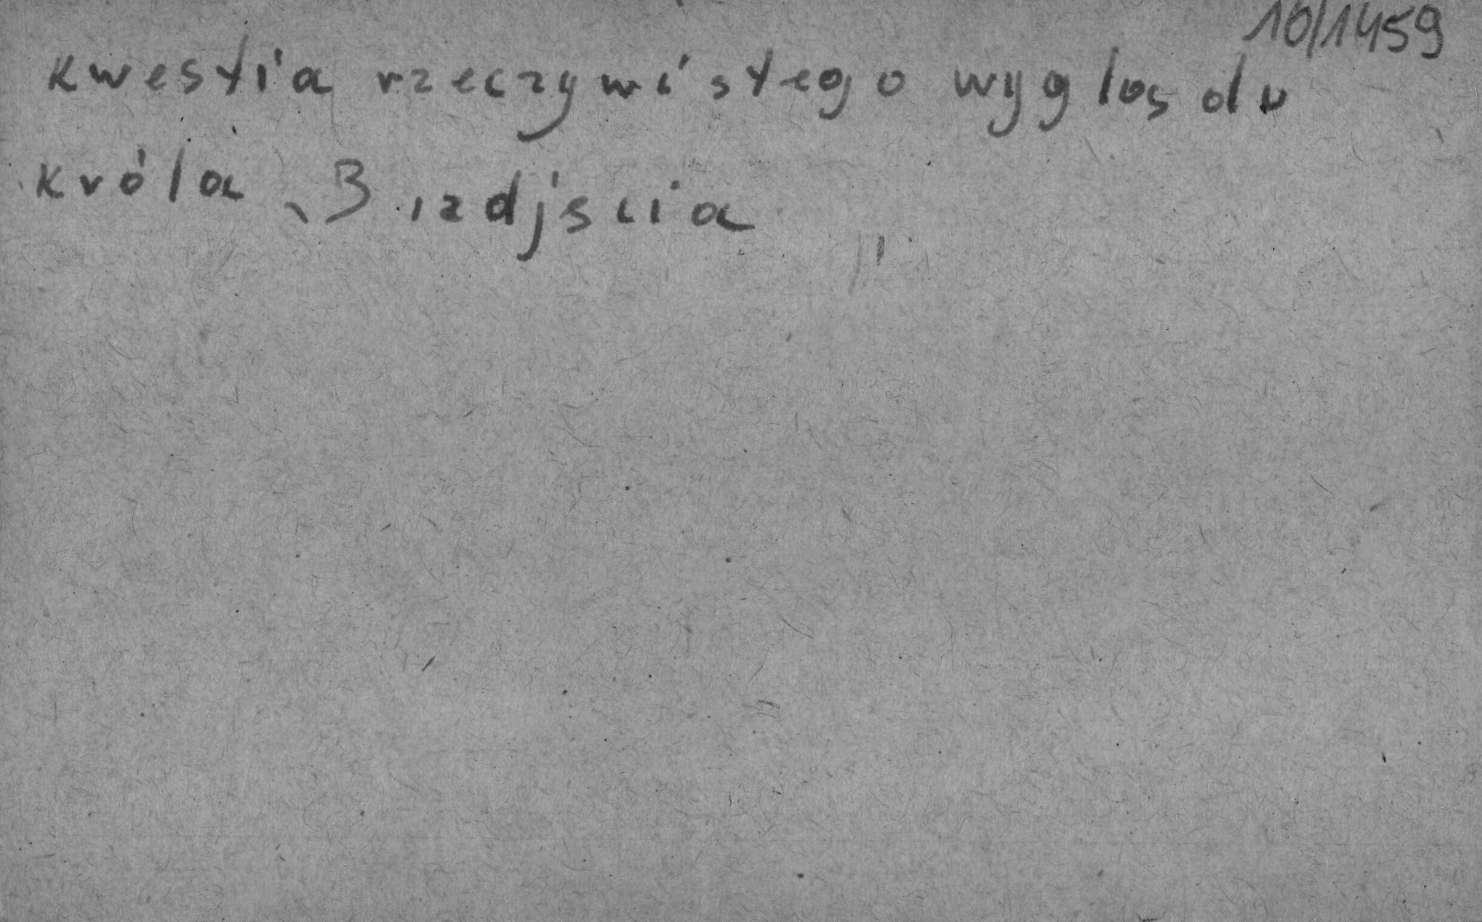 10/1459
kwestia rzeczywistego wyglądu
króla, 3 zdjścia